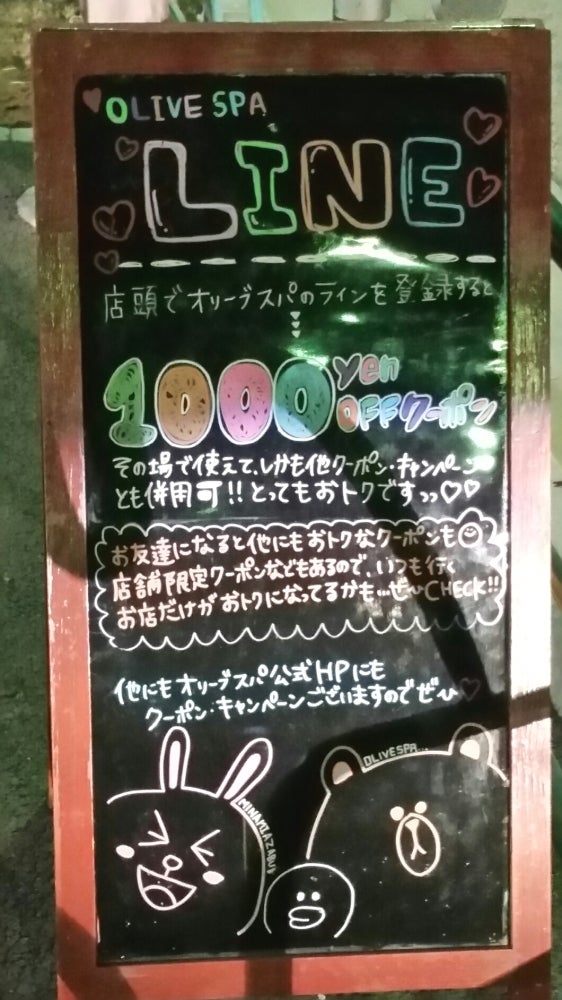 OLIVE SPA
LINE
店頭でオリーブスパのラインを登録すると
1000 yen
OFFクーポン
その場で使えて、しかも他クーポン・キャンペーン
とも併用可!!とってもおトクですっっ♡♡
お友達になると他にもおトクなクーポンも
店舗限定クーポンなどもあるので、いつも行く
お店だけがおトクになってるかも...ぜひCHECK!!
他にもオリーブスパ公式HPにも
クーポン・キャンペーンございますのでぜひ♡
OLIVESPA...
MINAMIAZABU